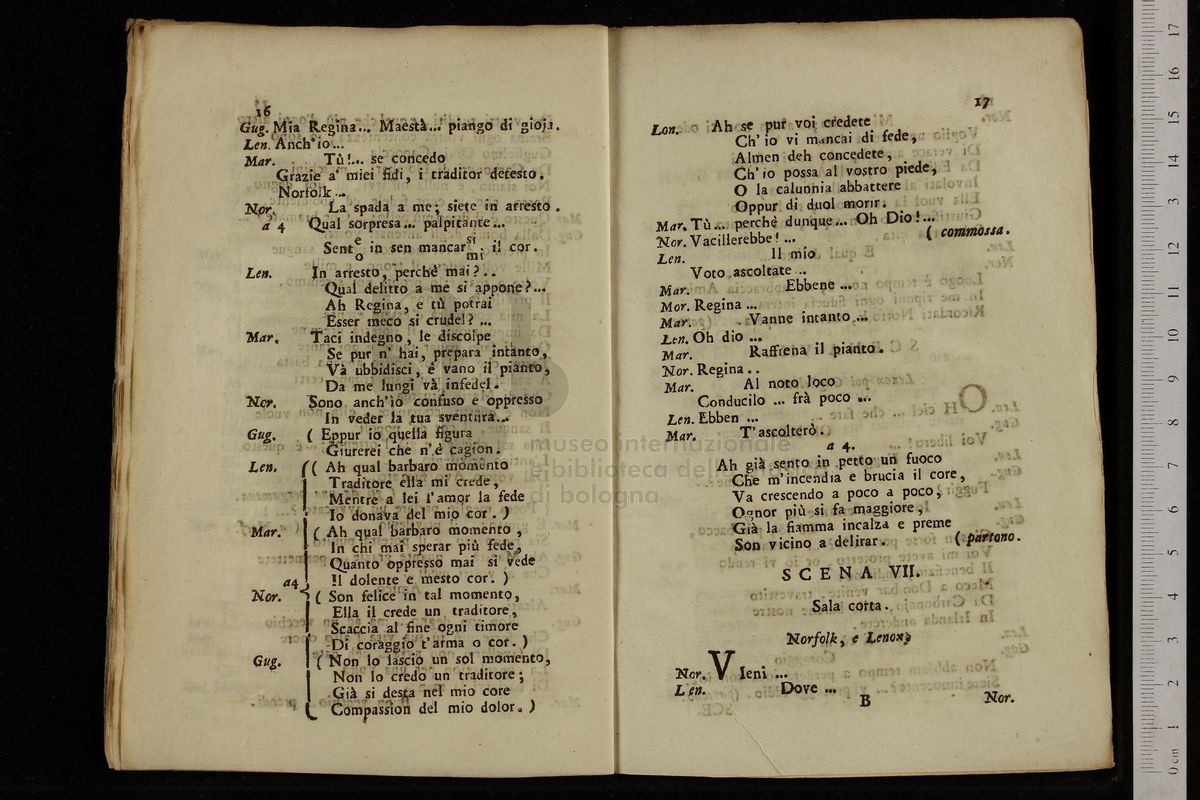 16
Gug. Mia Regina... Maestà... piango di gioja.
Len. Anch'io...
Mar. Tù!... se concedo
Grazie a' miei fidi, i traditor detesto.
Norfolk...
Nor. La spada a me; siete in arresto.
a 4 Qual sorpresa... palpitante...
Sent e/o in sen mancar si/mi il cor.
Len. In arresto, perchè mai?..
Qual delitto a me si appone?...
Ah Regina, e tù potrai
Esser meco si crudel? ...
Mar. Taci indegno, le discolpe
Se pur n' hai, prepara intanto,
Và ubbidisci, è vano il pianto,
Da me lungi và infedel.
Nor. Sono anch'io confuso e oppresso
In veder la tua sventura...
Gug. ( Eppur io quella figura
Giurerei che n'è cagion.
Len. ( Ah qual barbaro momento
Traditore ella mi crede,
Mentre a lei l'amor la fede
Io donava del mio cor. )
Mar. ( Ah qual barbaro momento,
In chi mai sperar più fede,
Quanto oppresso mai si vede
a4 Il dolente e mesto cor. )
Nor. ( Son felice in tal momento,
Ella il crede un traditore,
Scaccia al fine ogni timore
Di coraggio t'arma o cor. )
Gug. ( Non lo lascio un sol momento,
Non lo credo un traditore;
Già si desta nel mio core
Compassion del mio dolor. )
17
Len. Ah se pur voi credete
Ch' io vi mancai di fede,
Almen deh concedete,
Ch' io possa al vostro piede,
O la calunnia abbattere
Oppur di duol morir.
Mar. Tù... perchè dunque... Oh Dio!...
Nor. Vacillerebbe! ... ( commossa.
Len. Il mio
Voto ascoltate...
Mar. Ebbene ...
Mor. Regina ...
Mar. Vanne intanto ...
Len. Oh dio ...
Mar. Raffrena il pianto.
Nor. Regina..
Mar. Al noto loco
Conducilo ... frà poco ...
Len. Ebben ...
Mar. T'ascolterò.
a 4.
Ah già sento in petto un fuoco
Che m'incendia e brucia il core,
Va crescendo a poco a poco,
Ognor più si fa maggiore,
Già la fiamma incalza e preme
Son vicino a delirar. ( partono.
SCENA VII.
Sala corta.
Norfolk, e Lenox
Nor. Vieni ...
Len. Dove ...
B Nor.
museo internazionale
e biblioteca della musica
di bologna